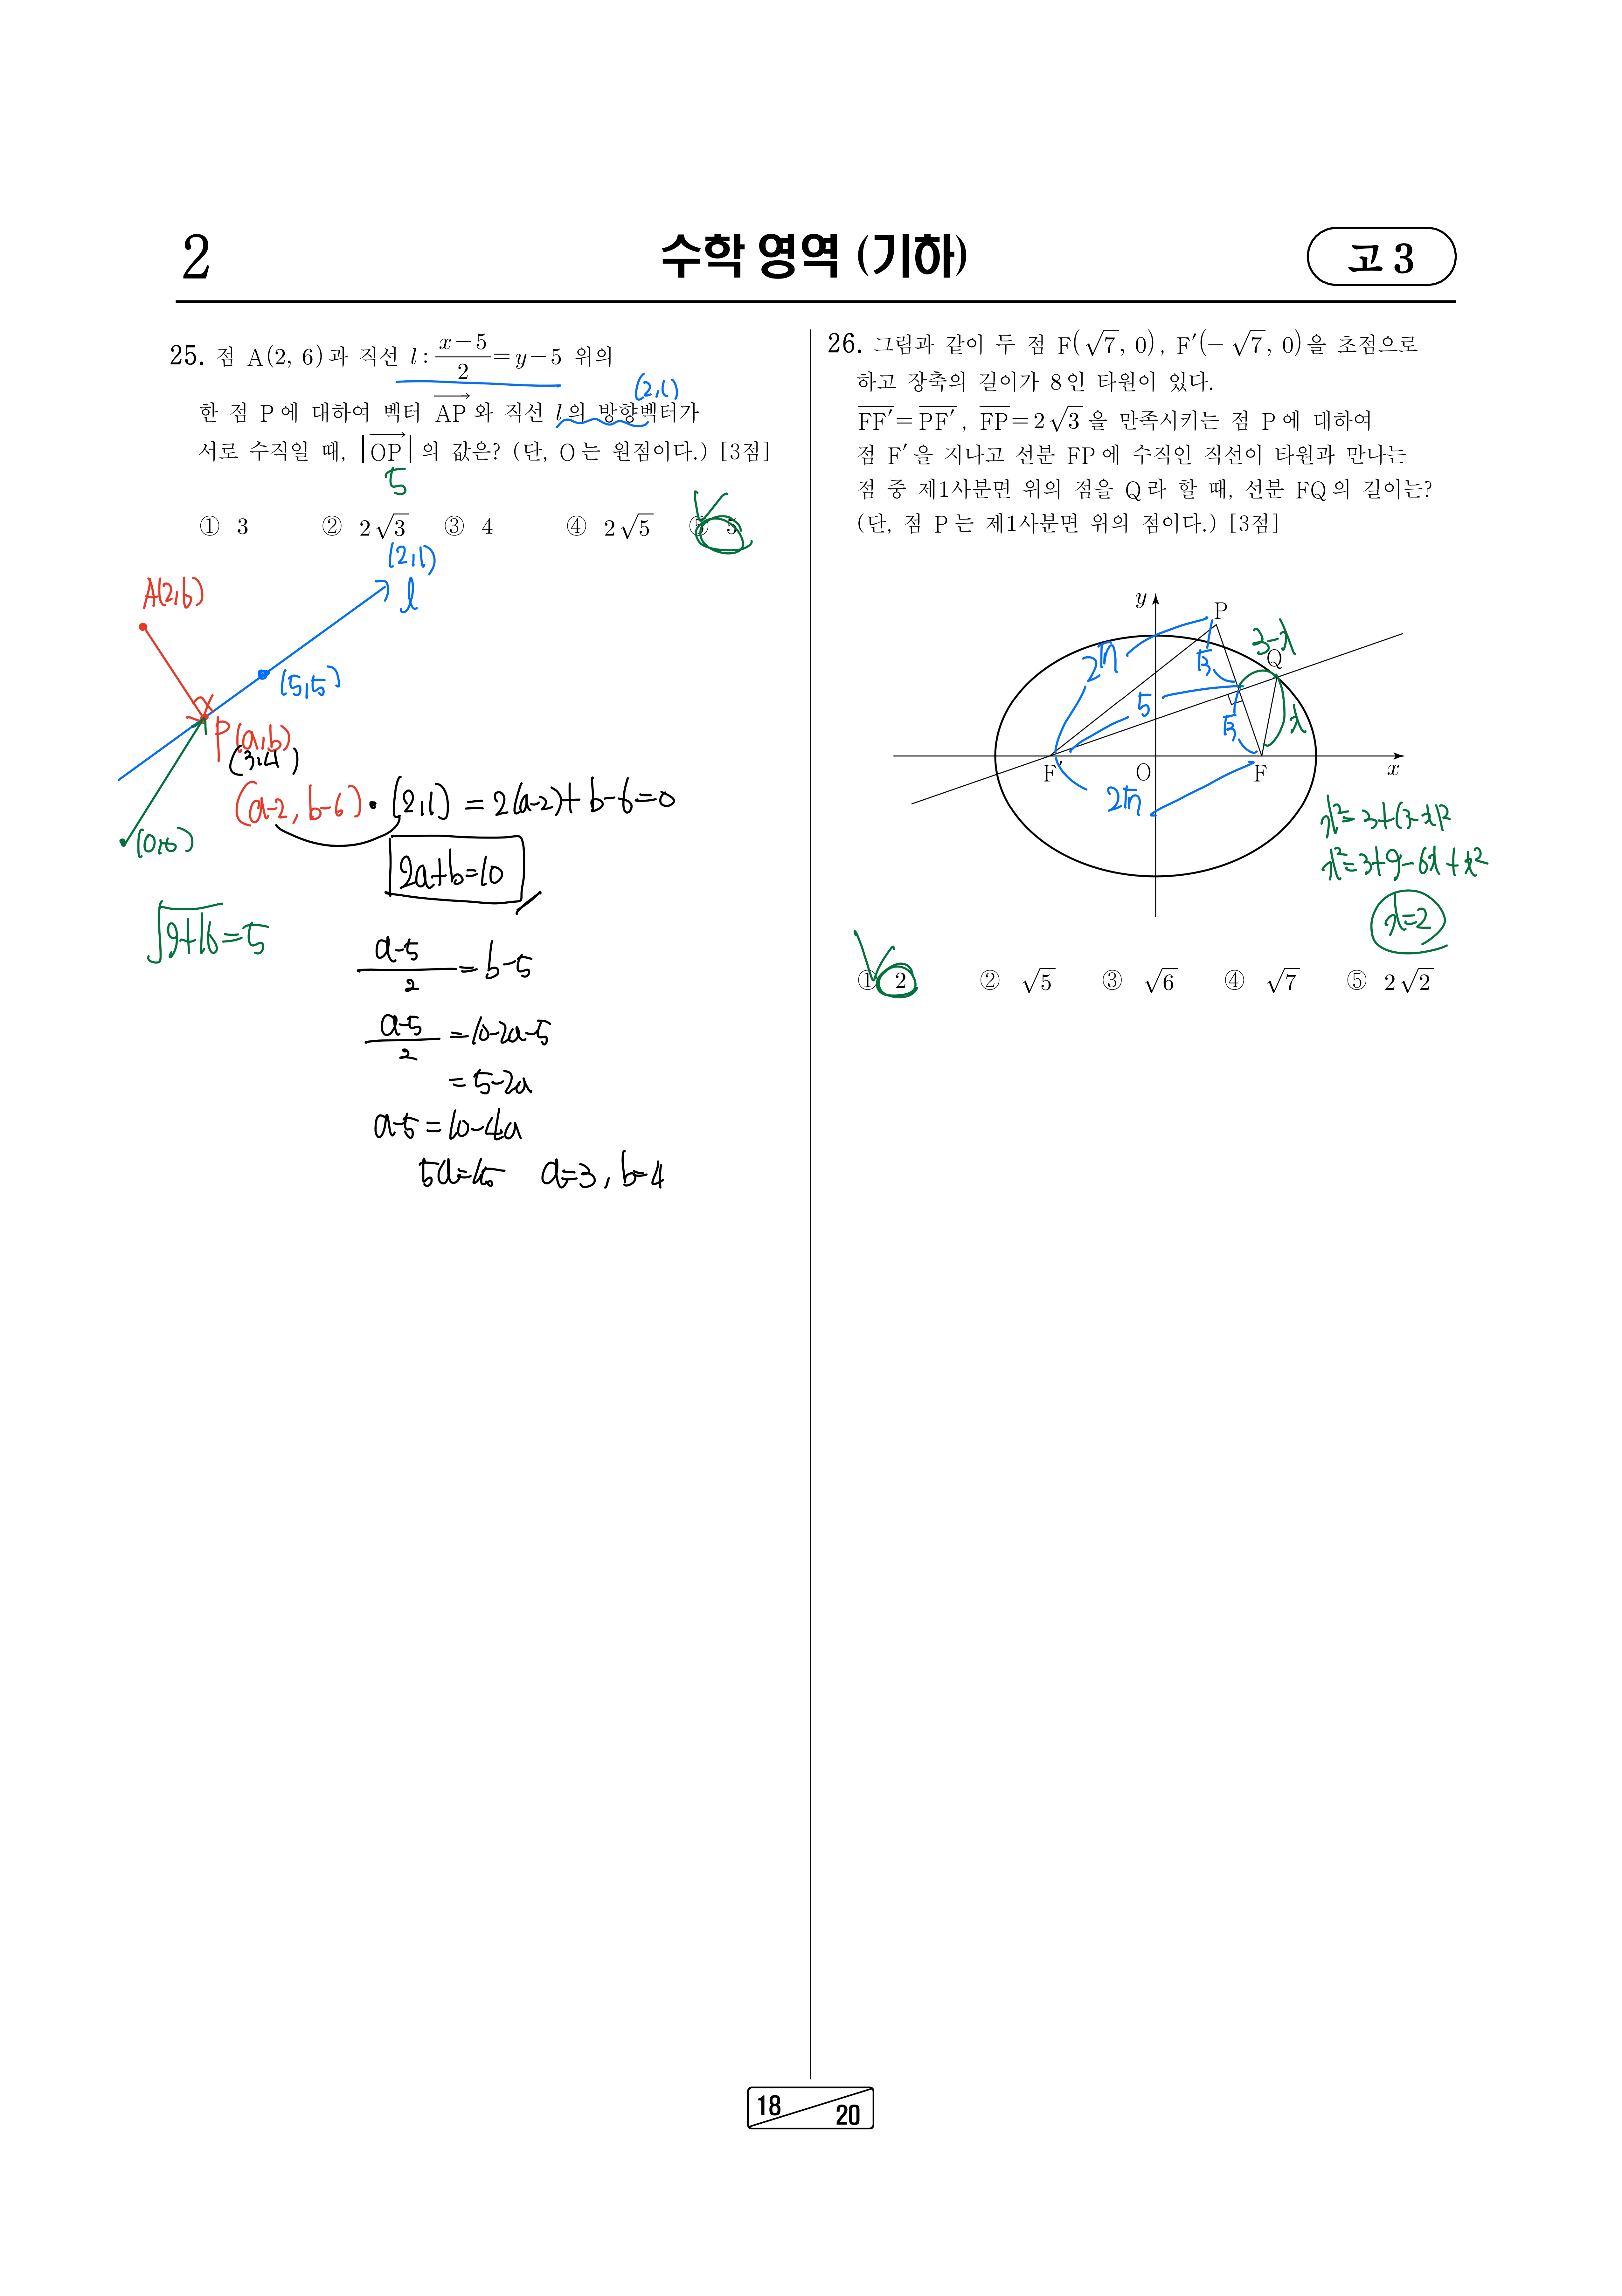 2
수학 영역 (기하)
고 3
25. 점 A(2, 6)과 직선 l : (x-5)/2 = y-5 위의
(2,1)
한 점 P에 대하여 벡터 AP와 직선 l의 방향벡터가
서로 수직일 때, |OP|의 값은? (단, O는 원점이다.) [3점]
5
① 3 ② 2√3 ③ 4 ④ 2√5 ⑤ 5
(2,1)
l
A(2,6)
(5,5)
P(a,b)
(3,4)
(a-2, b-6)·(2,1) = 2(a-2)+b-6=0
(0,0)
2a+b=10
√9+16=5
(a-5)/2 = b-5
(a-5)/2 = 10-2a-5
= 5-2a
a-5 = 10-4a
5a=15 a=3, b=4
26. 그림과 같이 두 점 F(√7, 0), F′(-√7, 0)을 초점으로
하고 장축의 길이가 8인 타원이 있다.
FF′=PF′, FP=2√3을 만족시키는 점 P에 대하여
점 F′을 지나고 선분 FP에 수직인 직선이 타원과 만나는
점 중 제1사분면 위의 점을 Q라 할 때, 선분 FQ의 길이는?
(단, 점 P는 제1사분면 위의 점이다.) [3점]
y
P
3-x
2√7
√3
Q
5
√3
x
F′ O F x
2√7
x²=3+(3-x)²
x²=3+9-6x+x²
x=2
① 2 ② √5 ③ √6 ④ √7 ⑤ 2√2
18
20